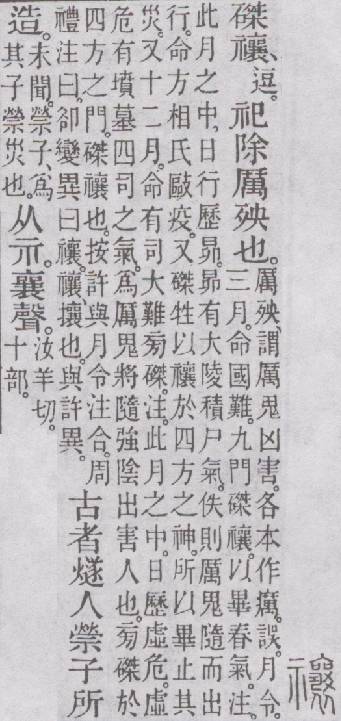 禳
磔禳、逗。祀除厲殃也。
厲殃、謂厲鬼凶害。各本作癘。誤。月令。
三月。命國難。九門磔禳。以畢春氣。注。
此月之中、日行歷昴。昴有大陵積尸氣。佚則厲鬼隨而出
行。命方相氏敺疫。又磔牲以禳於四方之神。所以畢止其
災。又十二月。命有司大難㫄磔。注。此月之中。日歷虛危。虛
危有墳墓四司之氣。爲厲鬼將隨強陰出害人也。㫄磔於
四方之門。磔禳也。按許與月令注合。周
禮注曰。卻變異曰禳。禳攘也。與許異。
古者燧人禜子所
造。
未聞。禜子、爲
其子禜災也。
从示。襄聲。
汝羊切。
十部。